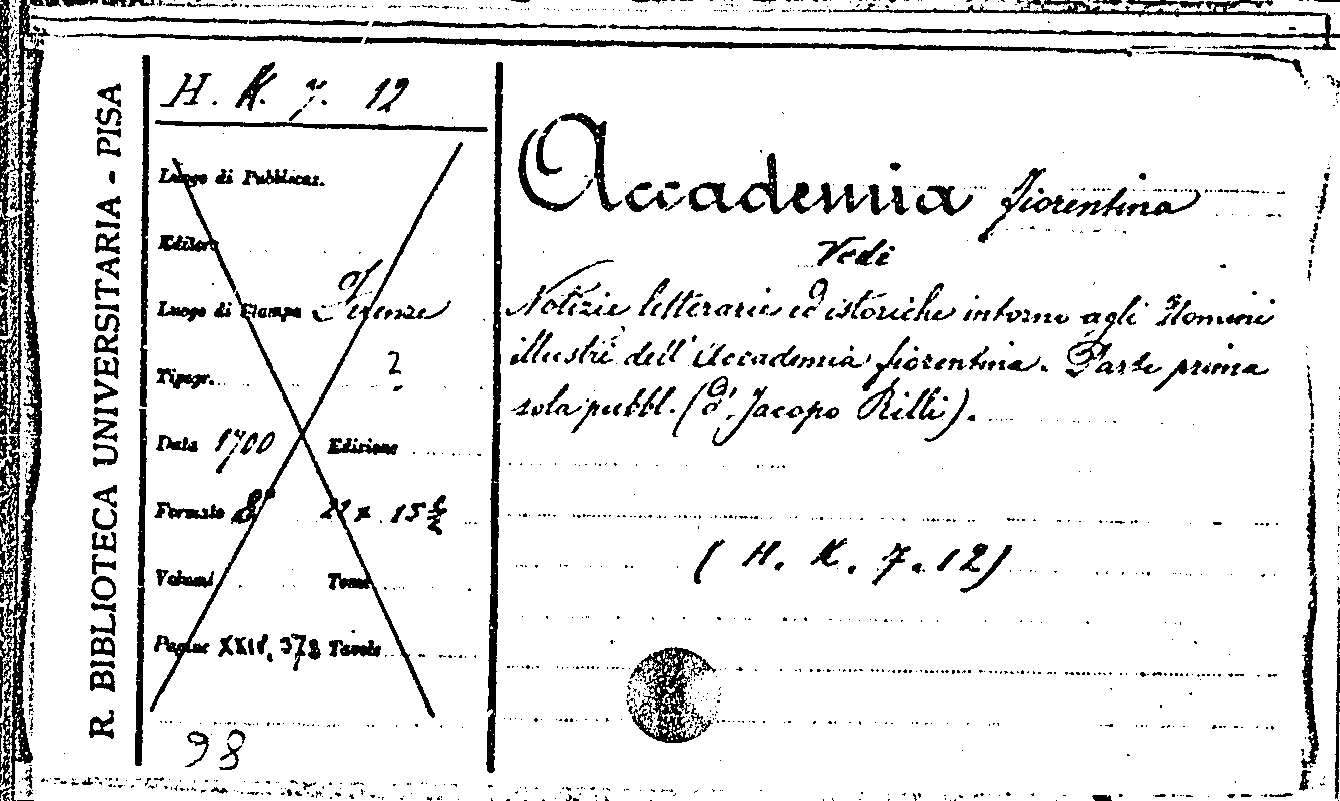 R. BIBLIOTECA UNIVERSITARIA - PISA
H. K. 7. 12
Luogo di Pubblicaz.
Editore
Luogo di Stampa Firenze
Tipogr. ?
Data 1700 Edizione
Formato 8° 21 x 15 ½
Volumi Tomi
Pagine XXIV, 378 Tavole
98
Accademia fiorentina
Vedi
Notizie letterarie ed istoriche intorno agli Uomini
illustri dell' Accademia fiorentina. Parte prima
sola pubbl. (d. Jacopo Rilli).
( H. K. 7. 12)